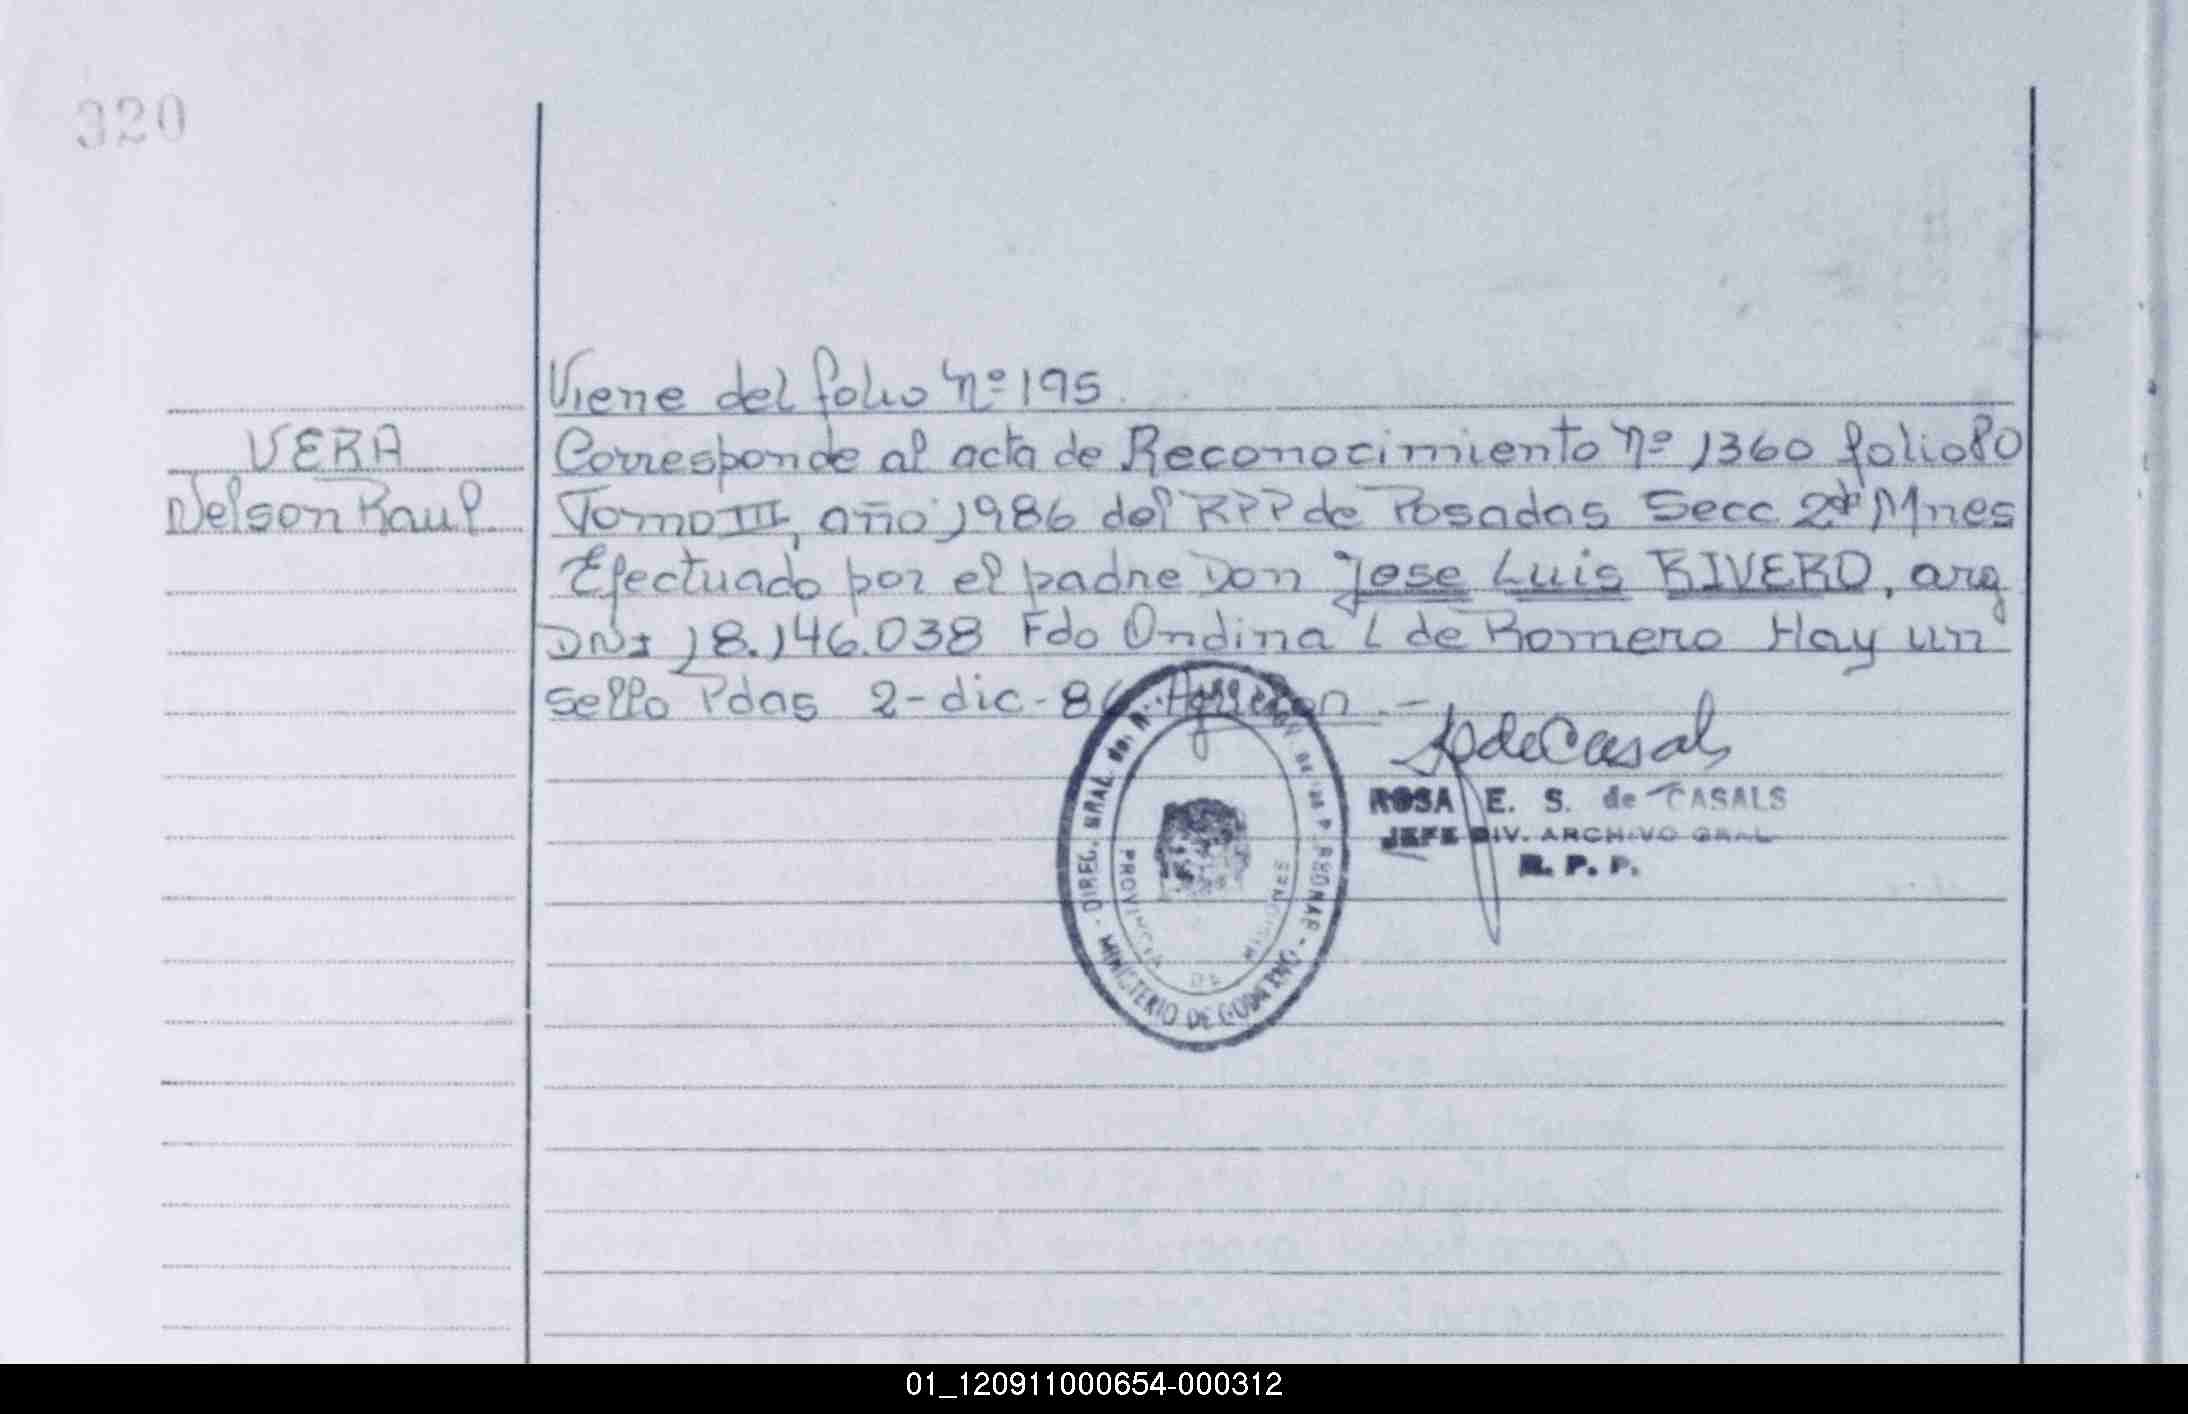 320
Viene del folio Nº 195.
VERA
Corresponde al acta de Reconocimiento Nº 1360 folio 80
Nelson Raul
Tomo III, año 1986 del RPP de Posadas Secc 2da Mnes
Efectuado por el padre Don Jose Luis RIVERO, arg
DNI 18.146.038 Fdo Ondina L de Romero Hay un
sello Pdas 2-dic-86
deCasals
ROSA E. S. de CASALS
JEFE DIV. ARCHIVO GRAL
R. P. P.
DIREC. GRAL. del
MINISTERIO DE GOBIERNO
PROVINCIA DE MISIONES
01_120911000654-000312